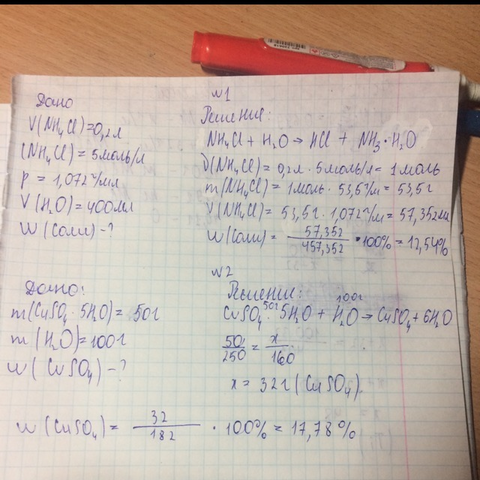 Дано
V(NH4Cl)=0,2л
C(NH4Cl) = 5моль/л
p = 1,072г/мл
V(H2O)=400мл
W(Соли) -?
№1
Решение:
NH4Cl + H2O → HCl + NH3·H2O
ν(NH4Cl)= 0,2л · 5моль/л= 1моль
m(NH4Cl)= 1моль · 53,5г/м = 53,5г
V(NH4Cl) = 53,5г · 1,072г/м = 57,352мл
W(Соли) = 57,352/457,352 * 100% = 12,54%
Дано:
m(CuSO4 · 5H2O)= 50г
m(H2O)= 100г
W(CuSO4) -?
№2
Решение:
50г 100г
CuSO4 · 5H2O + H2O → CuSO4 + 6H2O
50/250 = x/160
x = 32г(CuSO4)
W(CuSO4) = 32/182 · 100% = 17,78%